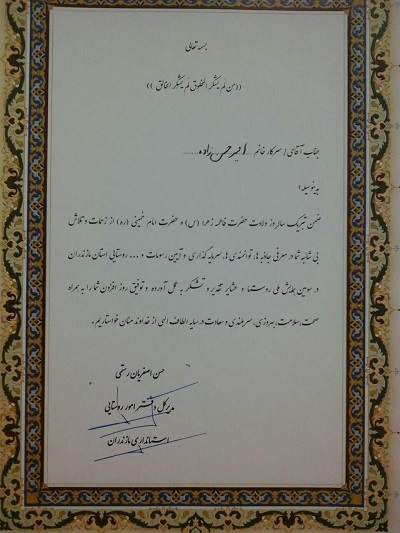 بسمه تعالی
((من لم یشکر المخلوق لم یشکر الخالق))
جناب آقای / سرکار خانم ...امیر حسن زاده......
بدینوسیله؛
ضمن تبریک سالروز ولادت حضرت فاطمه زهرا (س) و حضرت امام خمینی (ره) از زحمات و تلاش
بی شائبه شما در معرفی جاذبه ها، توانمندی ها، سرمایه گذاری و آیین رسومات و ... روستایی استان مازندران
در سومین همایش ملی روستا و عشایر تقدیر و تشکر به عمل آورده و توفیق روز افزون شما را به همراه
صحت، سلامت، بهروزی، سربلندی و سعادت در سایه الطاف الهی از خداوند منان خواستاریم.
حسن اصغریان رستمی
مدیرکل دفتر امور روستایی
استانداری مازندران